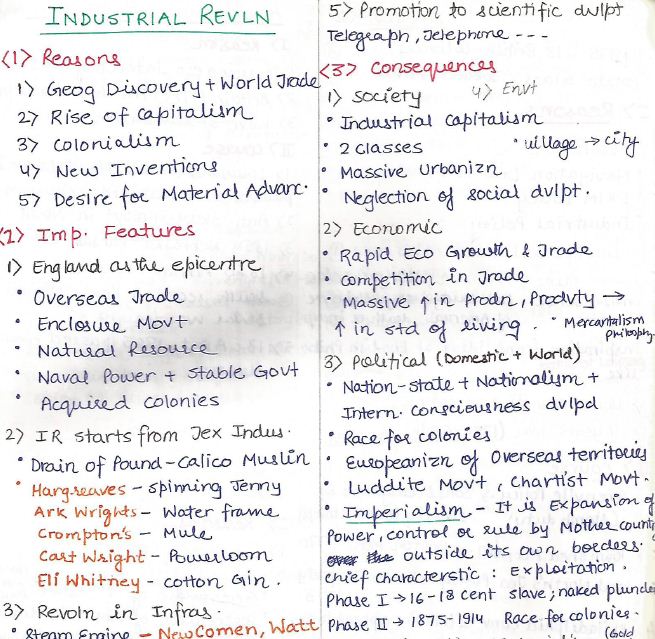 INDUSTRIAL REVLN
<1> Reasons
1> Geog Discovery + World Trade
2> Rise of capitalism
3> Colonialism
4> New Inventions
5> Desire for Material Advanc.
<2> Imp. Features
1> England as the epicentre
• Overseas Trade
• Enclosure Movt
• Natural Resource
• Naval Power + Stable Govt
• Acquired colonies
2> IR starts from Tex Indus.
• Drain of Pound - Calico Muslin
• Hargreaves - spinning Jenny
Ark Wrights - Water frame
Crompton's - Mule
Cart Wright - Powerloom
Eli Whitney - cotton Gin.
3> Revoln in Infras.
• Steam Engine - NewComen, Watt
5> Promotion to scientific dvlpt
Telegraph, Telephone ---
<3> Consequences
1> Society 4> Envt
• Industrial capitalism
• 2 classes • village → city
• Massive Urbanizn
• Neglection of social dvlpt.
2> Economic
• Rapid Eco Growth & Trade
• competition in Trade
• Massive ↑ in Prodn, Prodvty →
↑ in std of living. • Mercantalism
philosophy
3> Political (Domestic + World)
• Nation-state + Nationalism +
Intern. consciousness dvlpd
• Race for colonies
• Europeanizn of Overseas territories
• Luddite Movt, Chartist Movt.
• Imperialism - It is expansion of
power, control or rule by Mother country
outside its own borders.
chief characterstic : Exploitation.
Phase I → 16-18 cent slave; naked plunder
Phase II → 1875-1914 Race for colonies.
(Gold